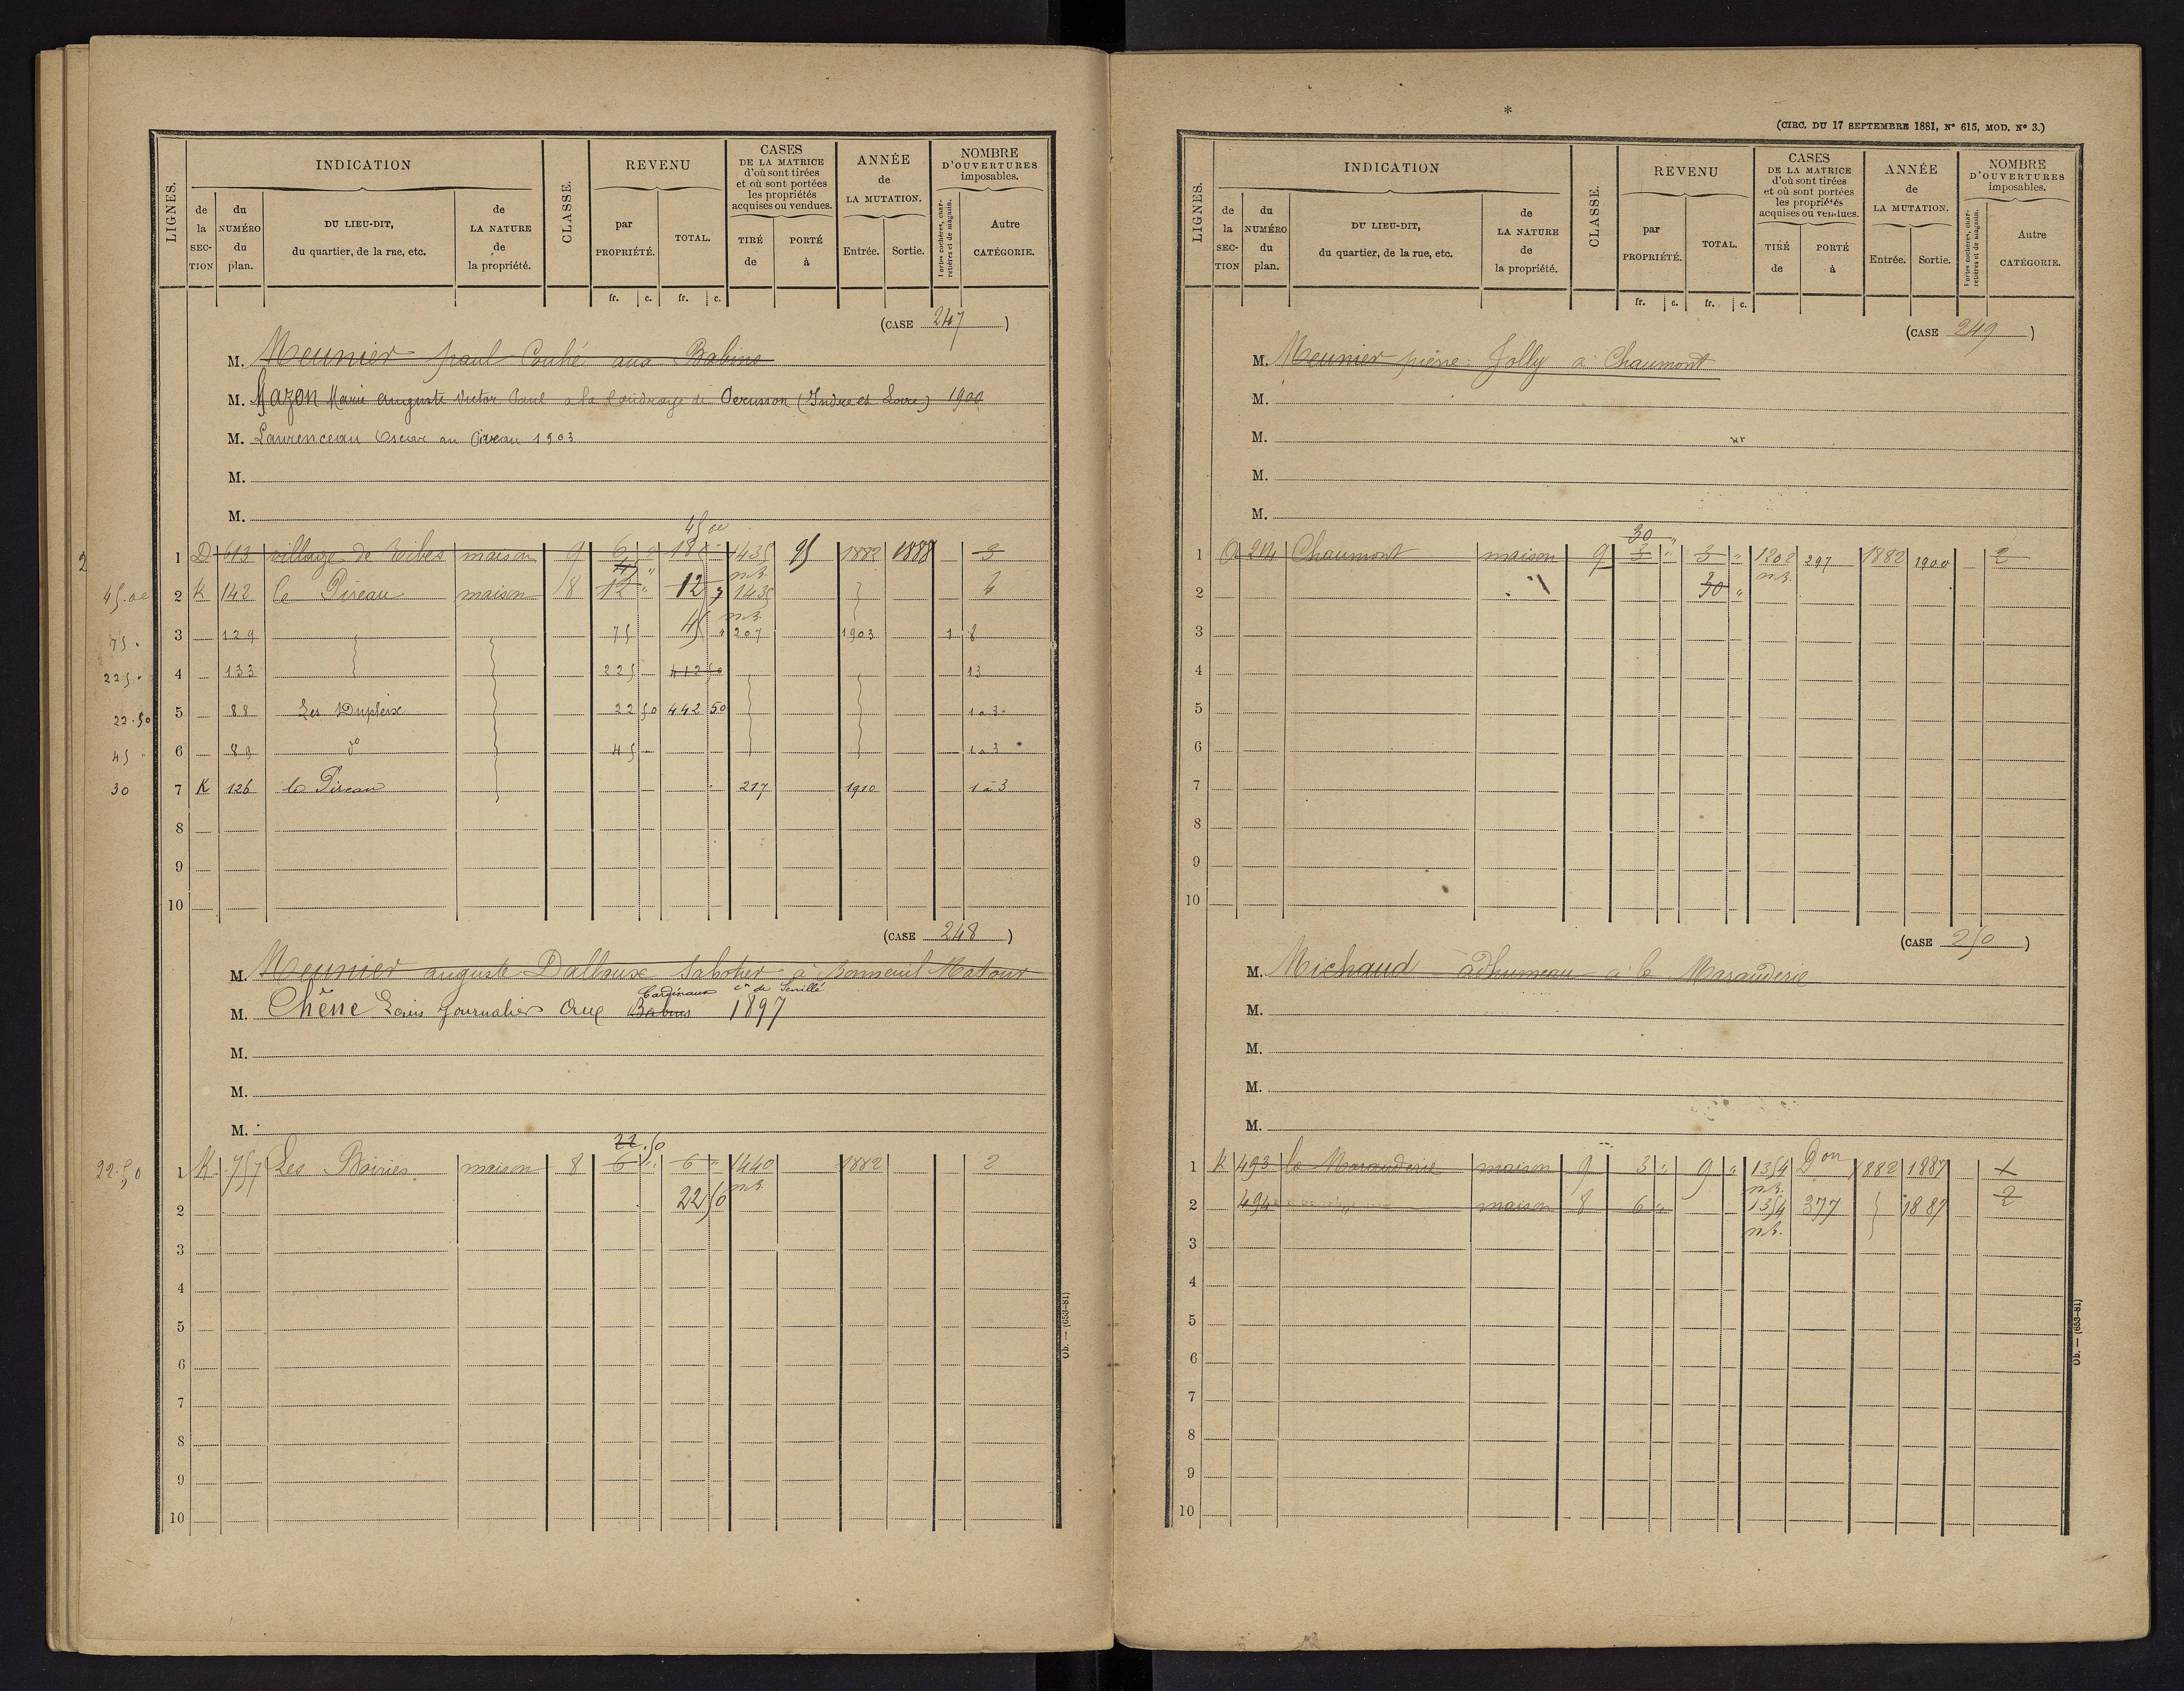 LIGNES.
INDICATION
de la SECTION
du NUMÉRO du plan.
DU LIEU-DIT, du quartier, de la rue, etc.
de LA NATURE de la propriété.
CLASSE.
REVENU
par PROPRIÉTÉ.
TOTAL.
CASES DE LA MATRICE d'où sont tirées et où sont portées les propriétés acquises ou vendues.
TIRÉ de
PORTÉ à
ANNÉE de LA MUTATION.
Entrée.
Sortie.
NOMBRE D'OUVERTURES imposables.
Portes cochères, charretières et de magasin.
Autre CATÉGORIE.
fr. c. fr. c.
(CASE 247)
M. Meunier paul Couhé aux Babins
M. Mazon Marie Auguste Victor Paul a la Coudraye de Perusson (Indre et Loire) 1900
M. Laurenceau Oscar au Pireau 1903
M.
M.
45 00
1 D 613 village de maison 9 6 " 18 1435 95 1882 1888 3
45.00 2 K 142 Le Pireau maison 8 12 " 12 1435 4
75 3 129 75 45 207 1903 1 8
225 4 133 225 412 50 13
22.50 5 88 Les Dupleix 22 50 442 50 1 a 3
45 6 89 do 45 1 a 3
30 7 K 126 le Pireau 217 1910 1 à 3
8
9
10
(CASE 248)
M. Meunier auguste Dalloux Sabotier à Bonneuil Matour
Cardinaux cne de Senillé
M. Chêne Louis Journalier aux Babins 1897
M.
M.
M.
22.50
22.50 1 K 757 Les Boiries maison 8 6 " 6 " 1440 1882 2
2 22 50
3
4
5
6
7
8
9
10
Ob. — (653-81)
*
(CIRC. DU 17 SEPTEMBRE 1881, N° 615, MOD. N° 3.)
LIGNES.
INDICATION
de la SECTION
du NUMÉRO du plan.
DU LIEU-DIT, du quartier, de la rue, etc.
de LA NATURE de la propriété.
CLASSE.
REVENU
par PROPRIÉTÉ.
TOTAL.
CASES DE LA MATRICE d'où sont tirées et où sont portées les propriétés acquises ou vendues.
TIRÉ de
PORTÉ à
ANNÉE de LA MUTATION.
Entrée.
Sortie.
NOMBRE D'OUVERTURES imposables.
Portes cochères, charretières et de magasin.
Autre CATÉGORIE.
fr. c. fr. c.
(CASE 249)
M. Meunier pierre Jolly à Chaumont
M.
M.
M.
M.
30 "
1 214 Chaumont maison 9 3 " 3 " 1202 297 1882 1900 2
2 30 "
3
4
5
6
7
8
9
10
(CASE 250)
M. Michaud adhumeau a la Marauderie
M.
M.
M.
M.
1 K 493 la Marauderie maison 9 3 " 9 " 1354 Don 1882 1887 1
2 494 maison 8 6 " 1354 377 1887 2
3
4
5
6
7
8
9
10
Ob. — (653-81)